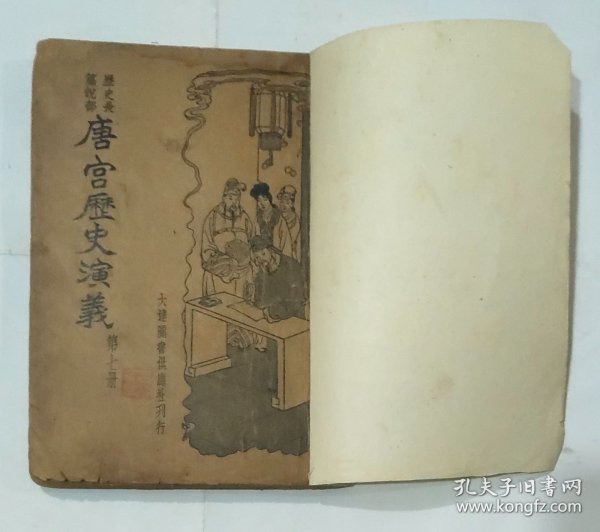 歷史長
篇說部
唐宮歷史演義
第上册
大達圖書供應社刋行
孔夫子旧书网
www.kongfz.com